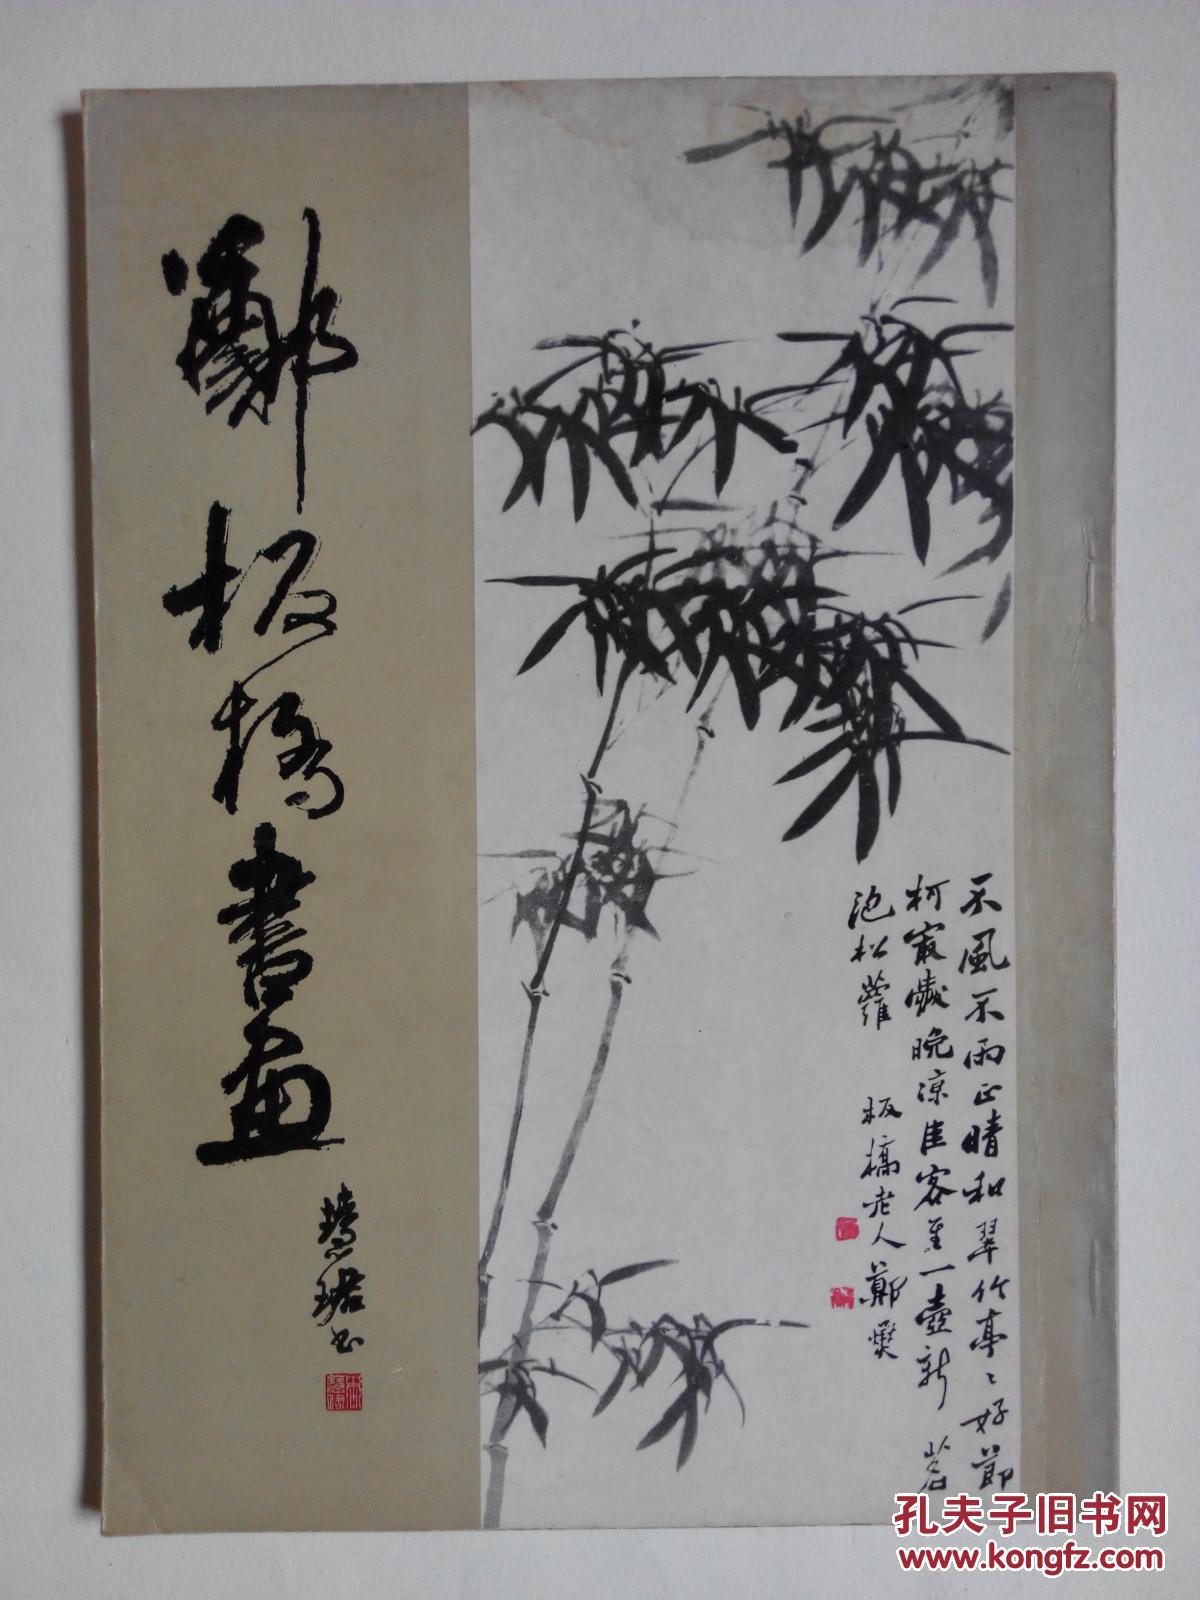 鄭板橋書畫
慧珺书
不風不雨正晴和翠竹亭〻好節
柯最愛晚凉佳客至一壺新茗
泡松蘿
板橋老人鄭燮
孔夫子旧书网
www.kongfz.com